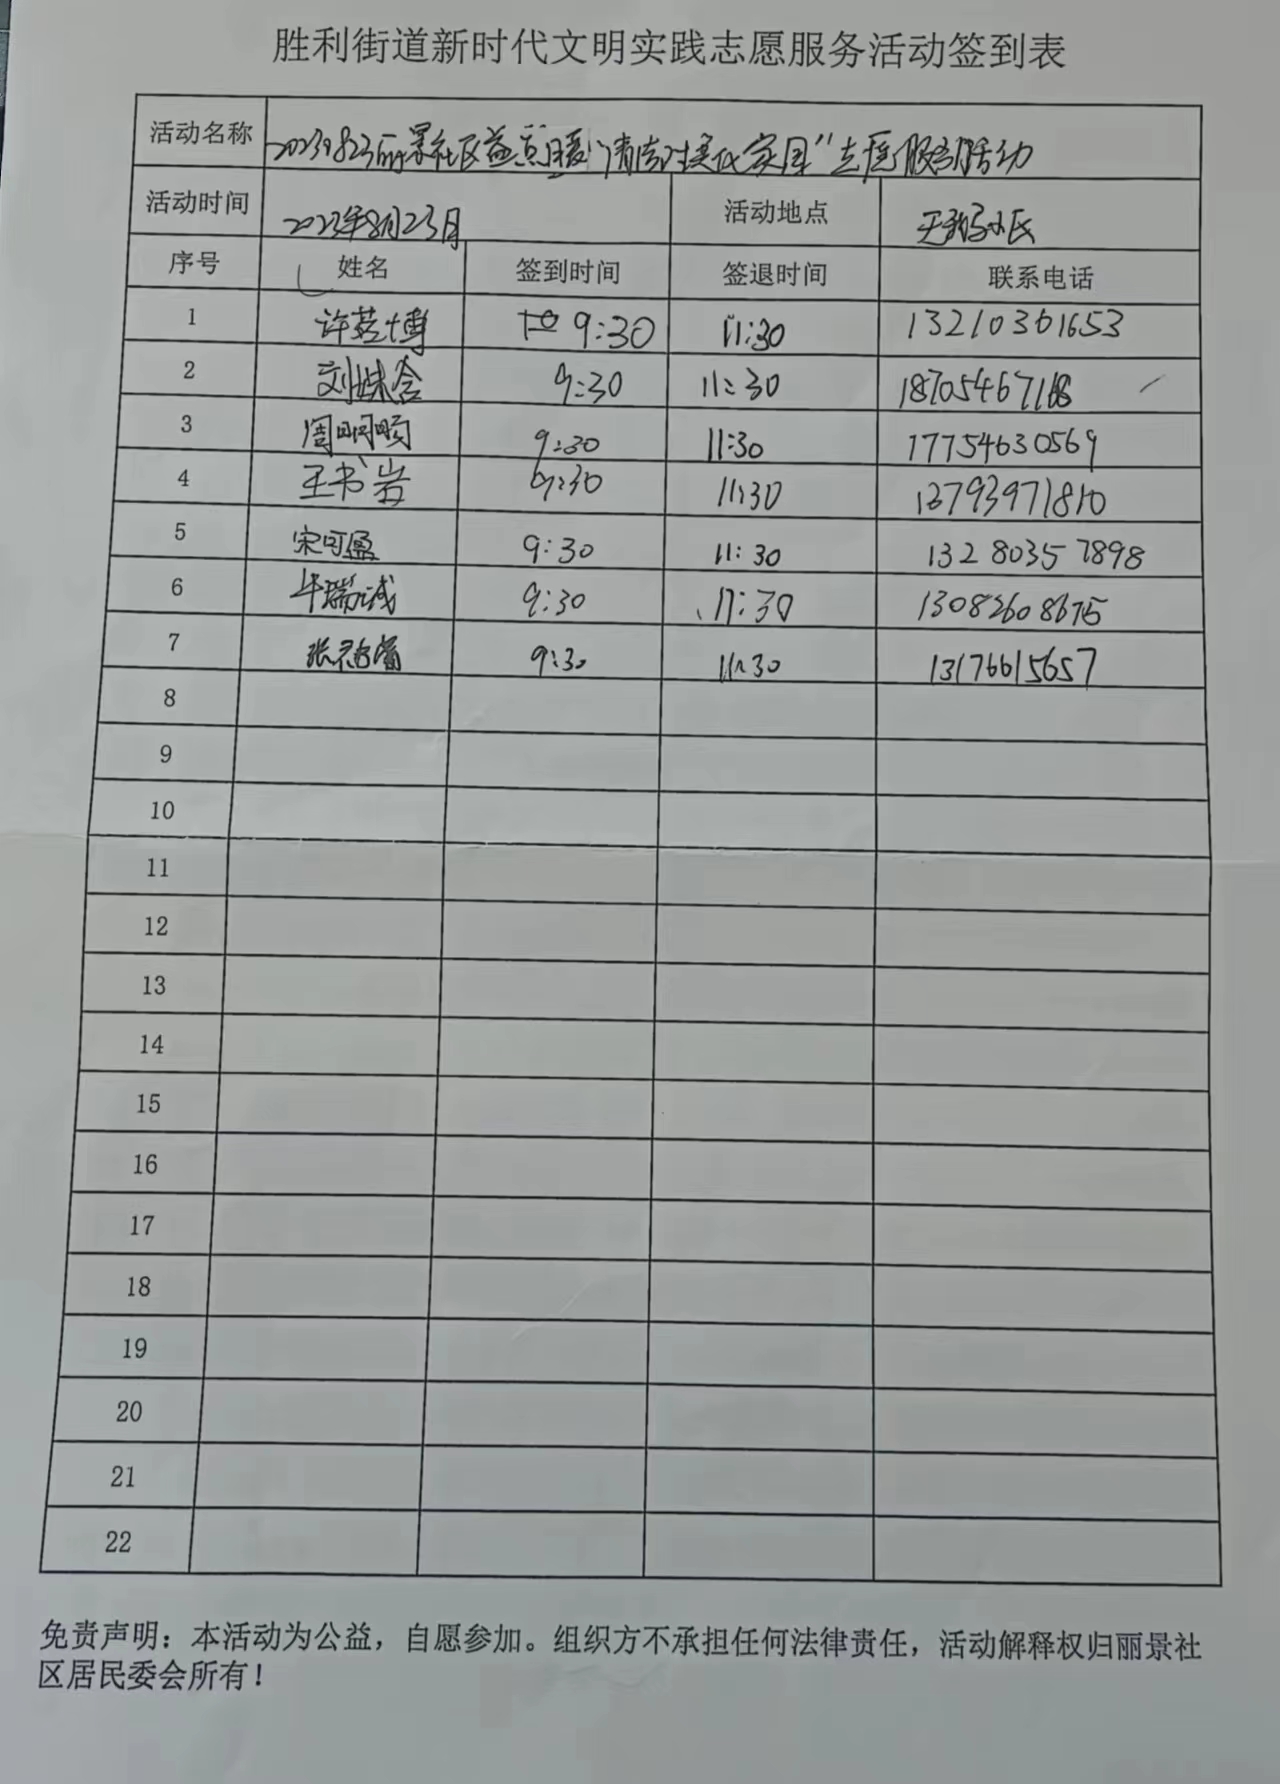 胜利街道新时代文明实践志愿服务活动签到表
活动名称 20230823丽景社区益 "清洁 家园"志愿服务活动
活动时间 2023年8月23日 活动地点
序号 姓名 签到时间 签退时间 联系电话
1 许 博 9:30 11:30 13210361653
2 刘姝含 9:30 11:30 187054671
3 周明 9:30 11:30 17754630569
4 王书岩 9:30 11:30 13793971810
5 宋可盈 9:30 11:30 13280357898
6 牛瑞诚 9:30 11:30 13082608675
7 张 9:30 11:30 13176615657
8
9
10
11
12
13
14
15
16
17
18
19
20
21
22
免责声明：本活动为公益，自愿参加。组织方不承担任何法律责任，活动解释权归丽景社
区居民委会所有！